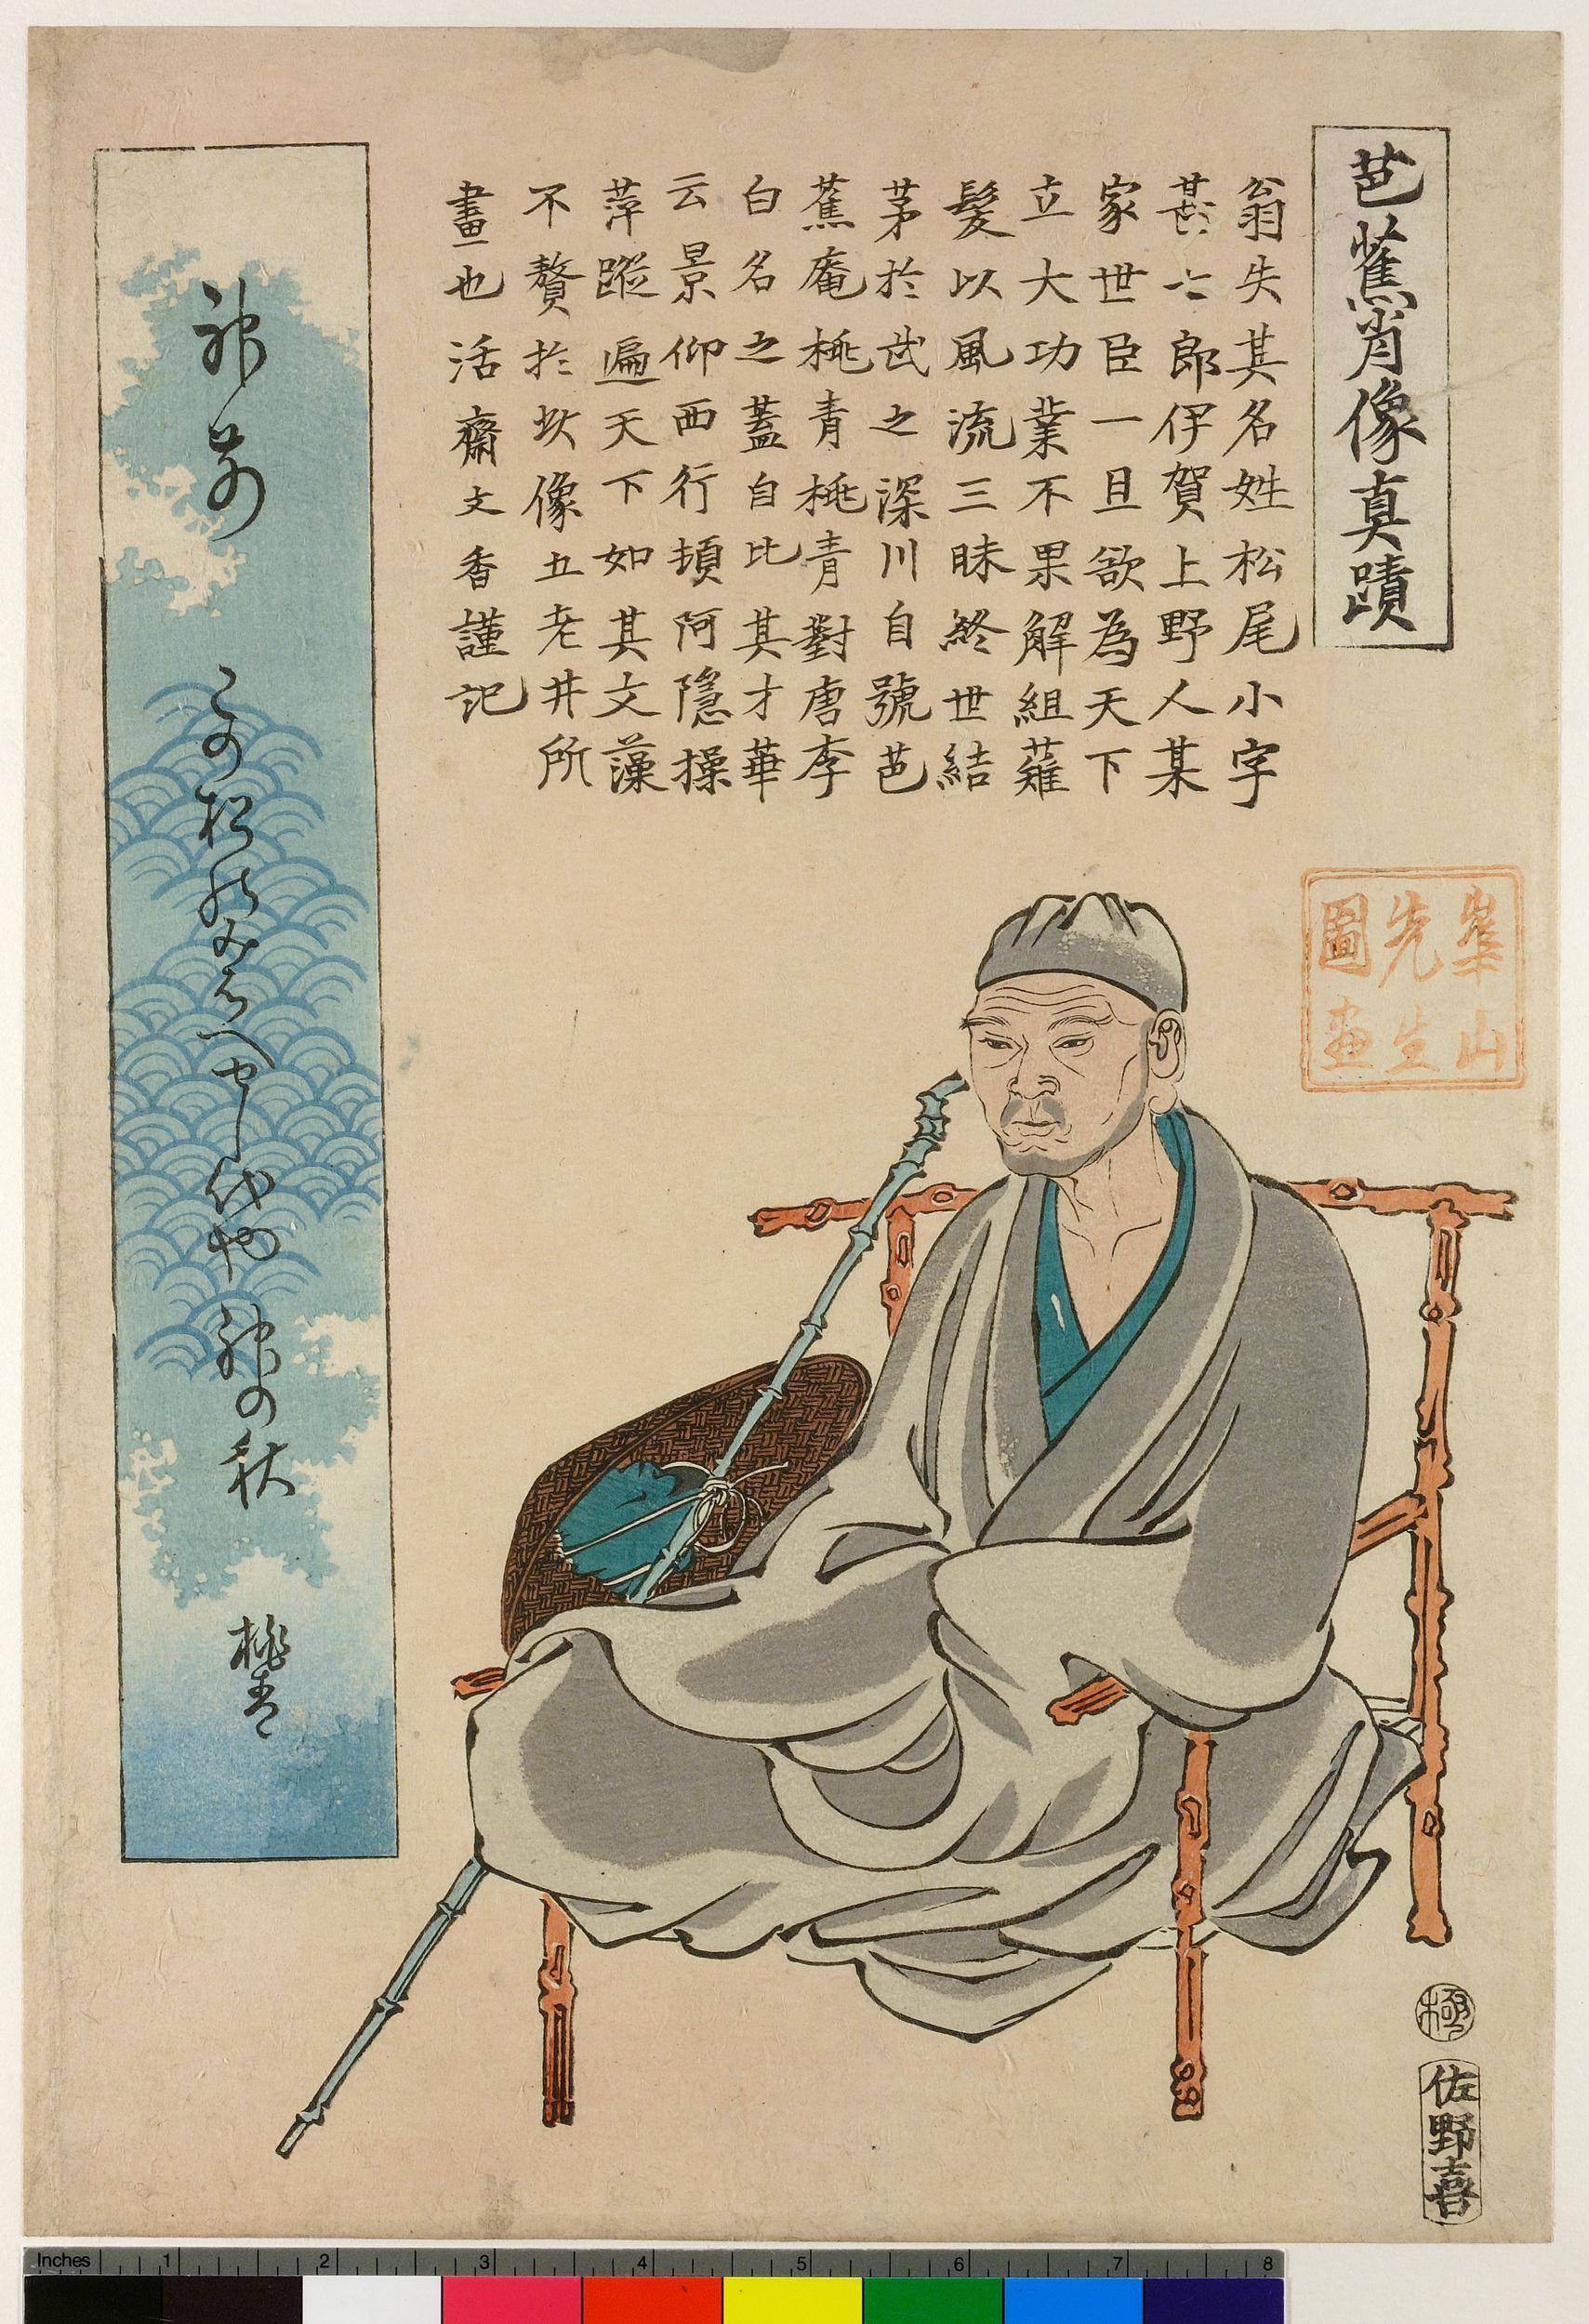 芭蕉肖像真蹟
翁失其名姓松尾小字
甚七郎伊賀上野人某
家世臣一旦欲為天下
立大功業不果解組薙
髮以風流三昧終世結
茅於武之深川自號芭
蕉庵桃青桃青對唐李
白名之蓋自比其才華
云景仰西行頓阿隱操
萍蹤遍天下如其文藻
不贅於像五老井所
畫也活齋文香謹記
崋山
先生
圖画
神前
この松のみはへせし代や神の秋
桃青
極
佐野喜
Inches 1 2 3 4 5 6 7 8